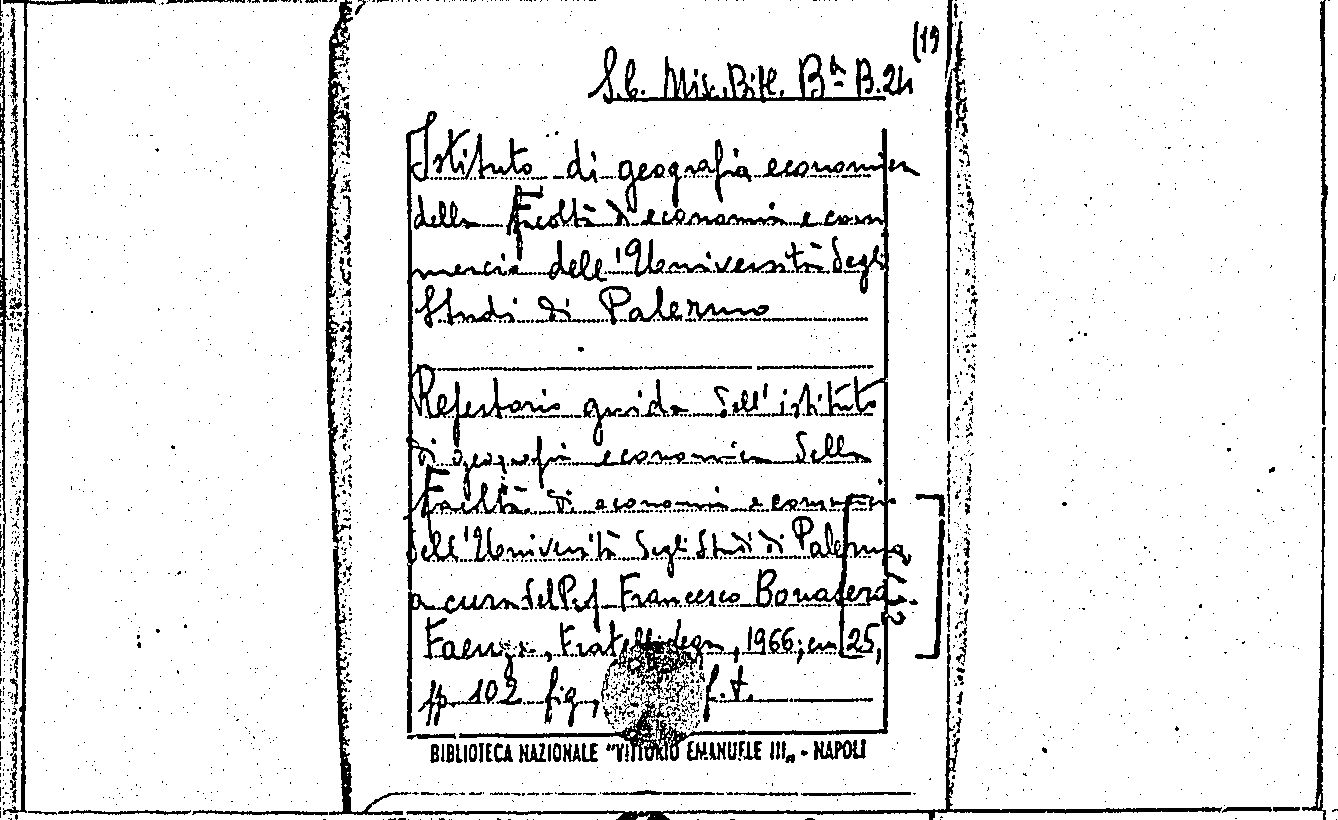 (19
S.b. Misc. Bibl. Bª B.24
Istituto di geografia economica
della Facoltà di economia e com
mercio dell'Università degli
Studi di Palermo
Repertorio guida dell'istituto
di geografia economica della
Facoltà di economia e commercio
dell'Università degli Studi di Palermo,
a cura del Prof Francesco Bonasera
Faenza, Fratelli Lega, 1966; cm 25,
pp 102 fig, f.t.
BIBLIOTECA NAZIONALE "VITTORIO EMANUELE III„ - NAPOLI